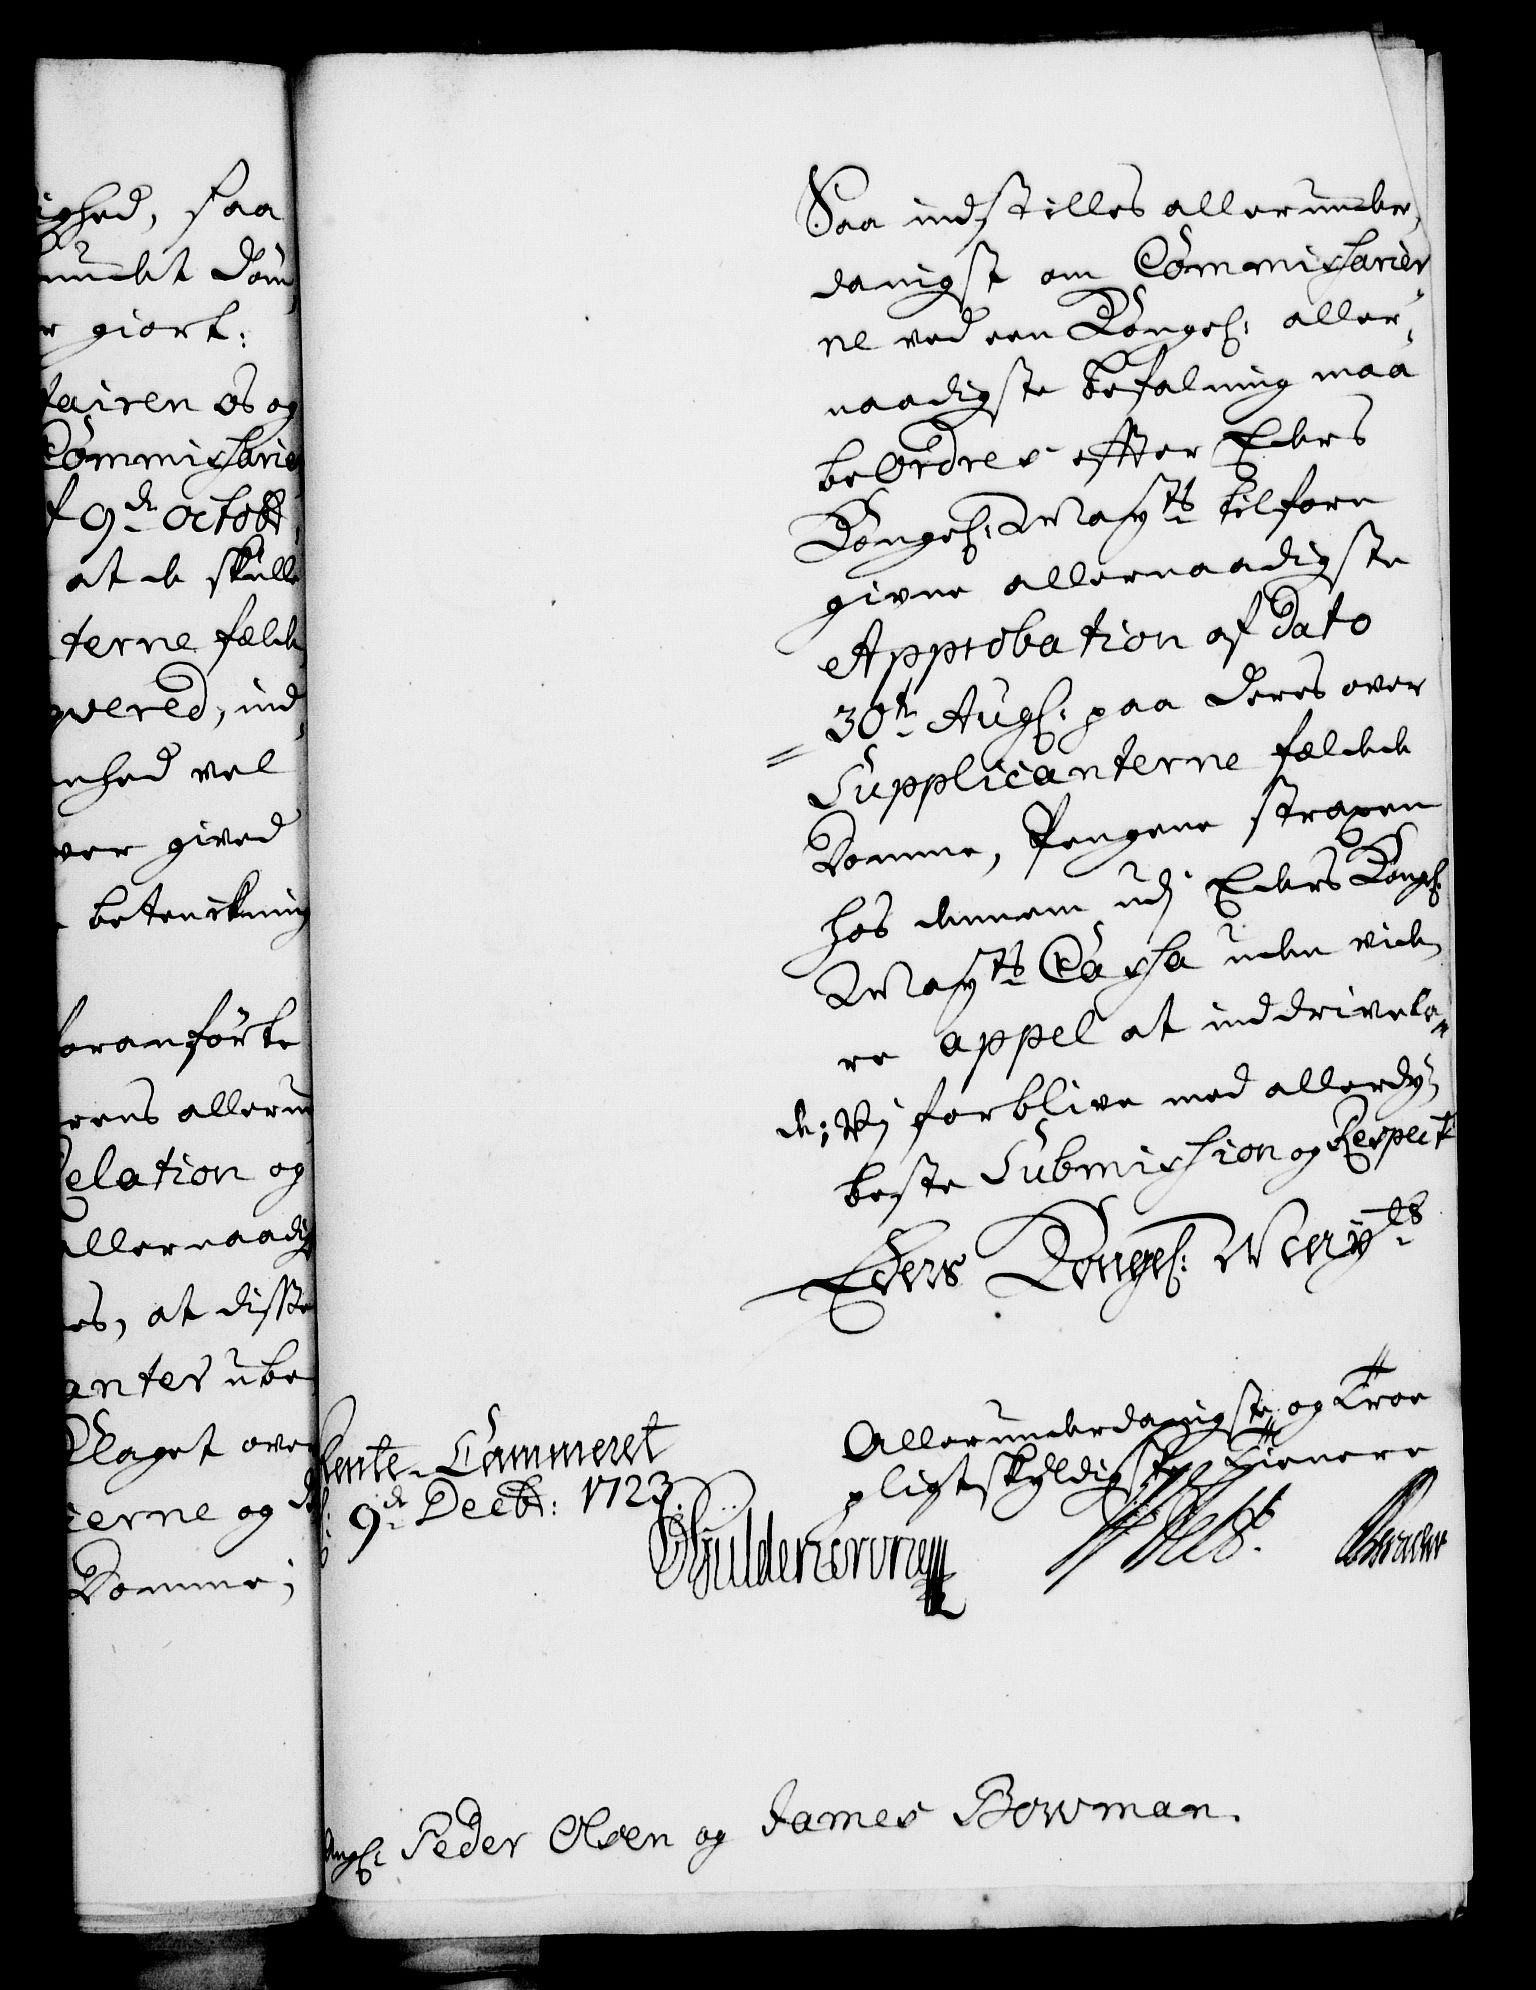 ighed, saa
undt Dom
r giort:
tairen os og
Commissarier
f 9de Octobr:
at de skulle
terne fælde
qvered, ind
enhed vel
ver gived
betenckning
foranførte
rens allerun
Relation og
allernaadig
es, at disse
anter ube
Klaget over
ierne og
Domme;
Saa indstilles allerunder,
danigst om Commissarier,
ne ved een Kongel: aller,
naadigste befalning maa
beordres effter Eders
Kongel: Mayts tilforn
givne allernaadigste
Approbation af Dato
30te Augl: paa deres over
Supplicanterne fældede
Domme, Pengene straxen
hos dennem udj Eders Kongl:
Mayts Cassa uden vide,
re appel at inddrive la,
de; Vi forblive med allerdy,
beste Submission og Respect
Eders Kongel: Mayts
Allerunderdanigste og Troe
pligtskyldigste Tienere
Rente-Cammeret
9de Decbr: 1723.
Güldencrone
Angl: Peder Olsen og James Bowman.